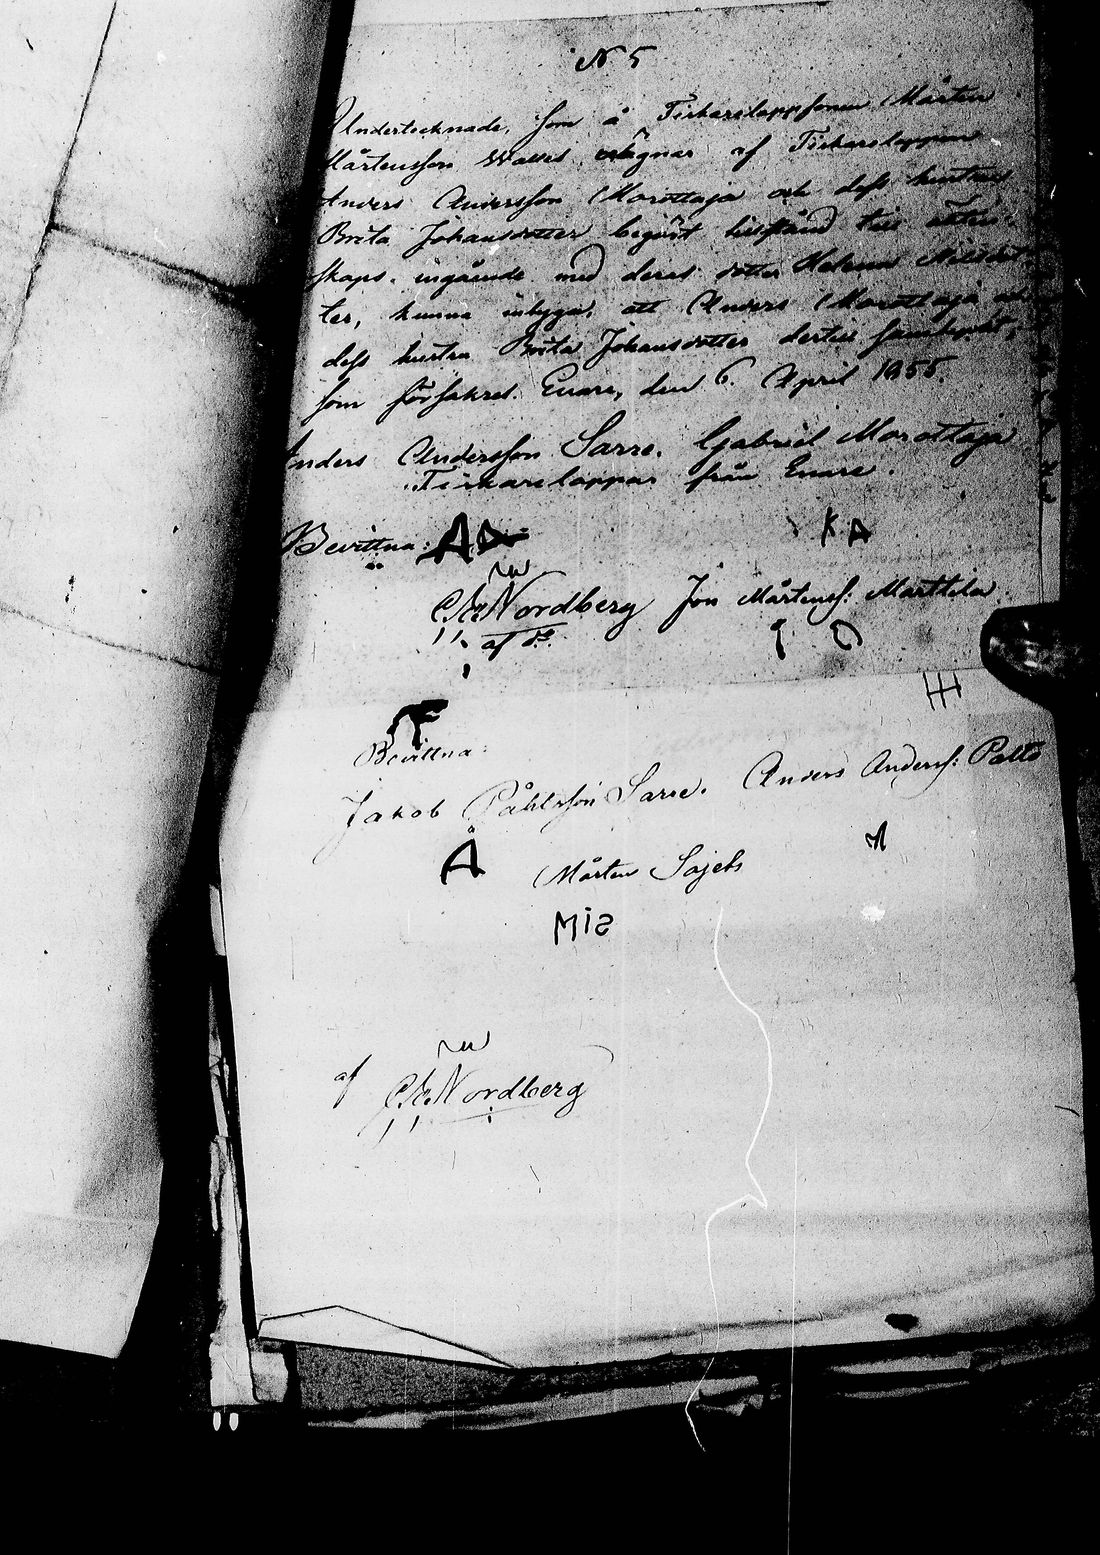 N 5
Undertecknade, som å Fiskarelappsonen Mårten
Mårtensson Walles vägnar af Fiskarelappen
Anders Andersson Morottaja och dess hustru
Brita Johansdotter begärt bifall till äkten-
skaps ingående med deras dotter Helena
ter, kunna intyga, att Anders Morottaja och
dess hustru Brita Johansdotter dertill samtyckt,
som försäkras. Enare, den 6. April 1855.
Anders Andersson Sarre. Gabriel Morottaja
Fiskarelappar från Enare.
Bevittna: A
K A
Nordberg Jon Mårtenss: Marttila
af
Bevittna:
Jakob Påhlsson Sarre. Anders Anderss: Palto
A
Mårten Sajets
MiS
af Nordberg